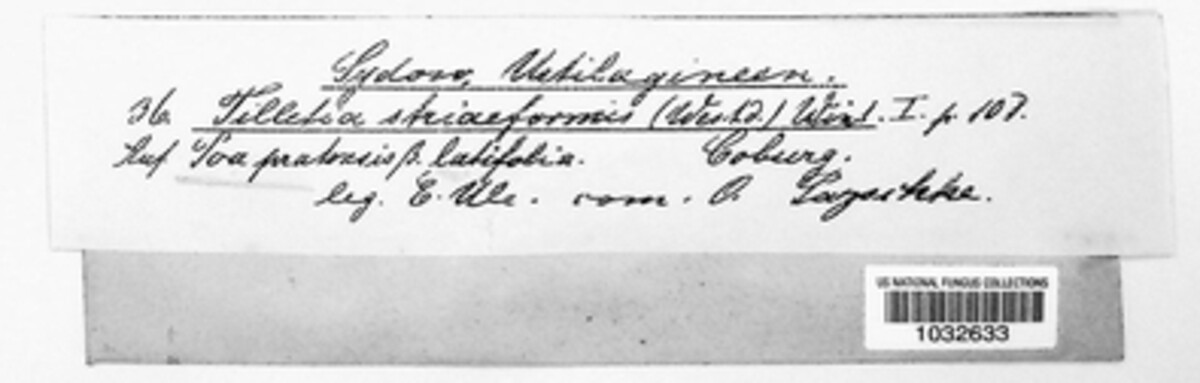 Sydow, Ustilagineen.
36. Tilletia striaeformis (Westd.) Wint. I. p. 107.
Auf Poa pratensis β. latifolia. Coburg.
leg. E. Ule. com. O.
US NATIONAL FUNGUS COLLECTIONS
1032633